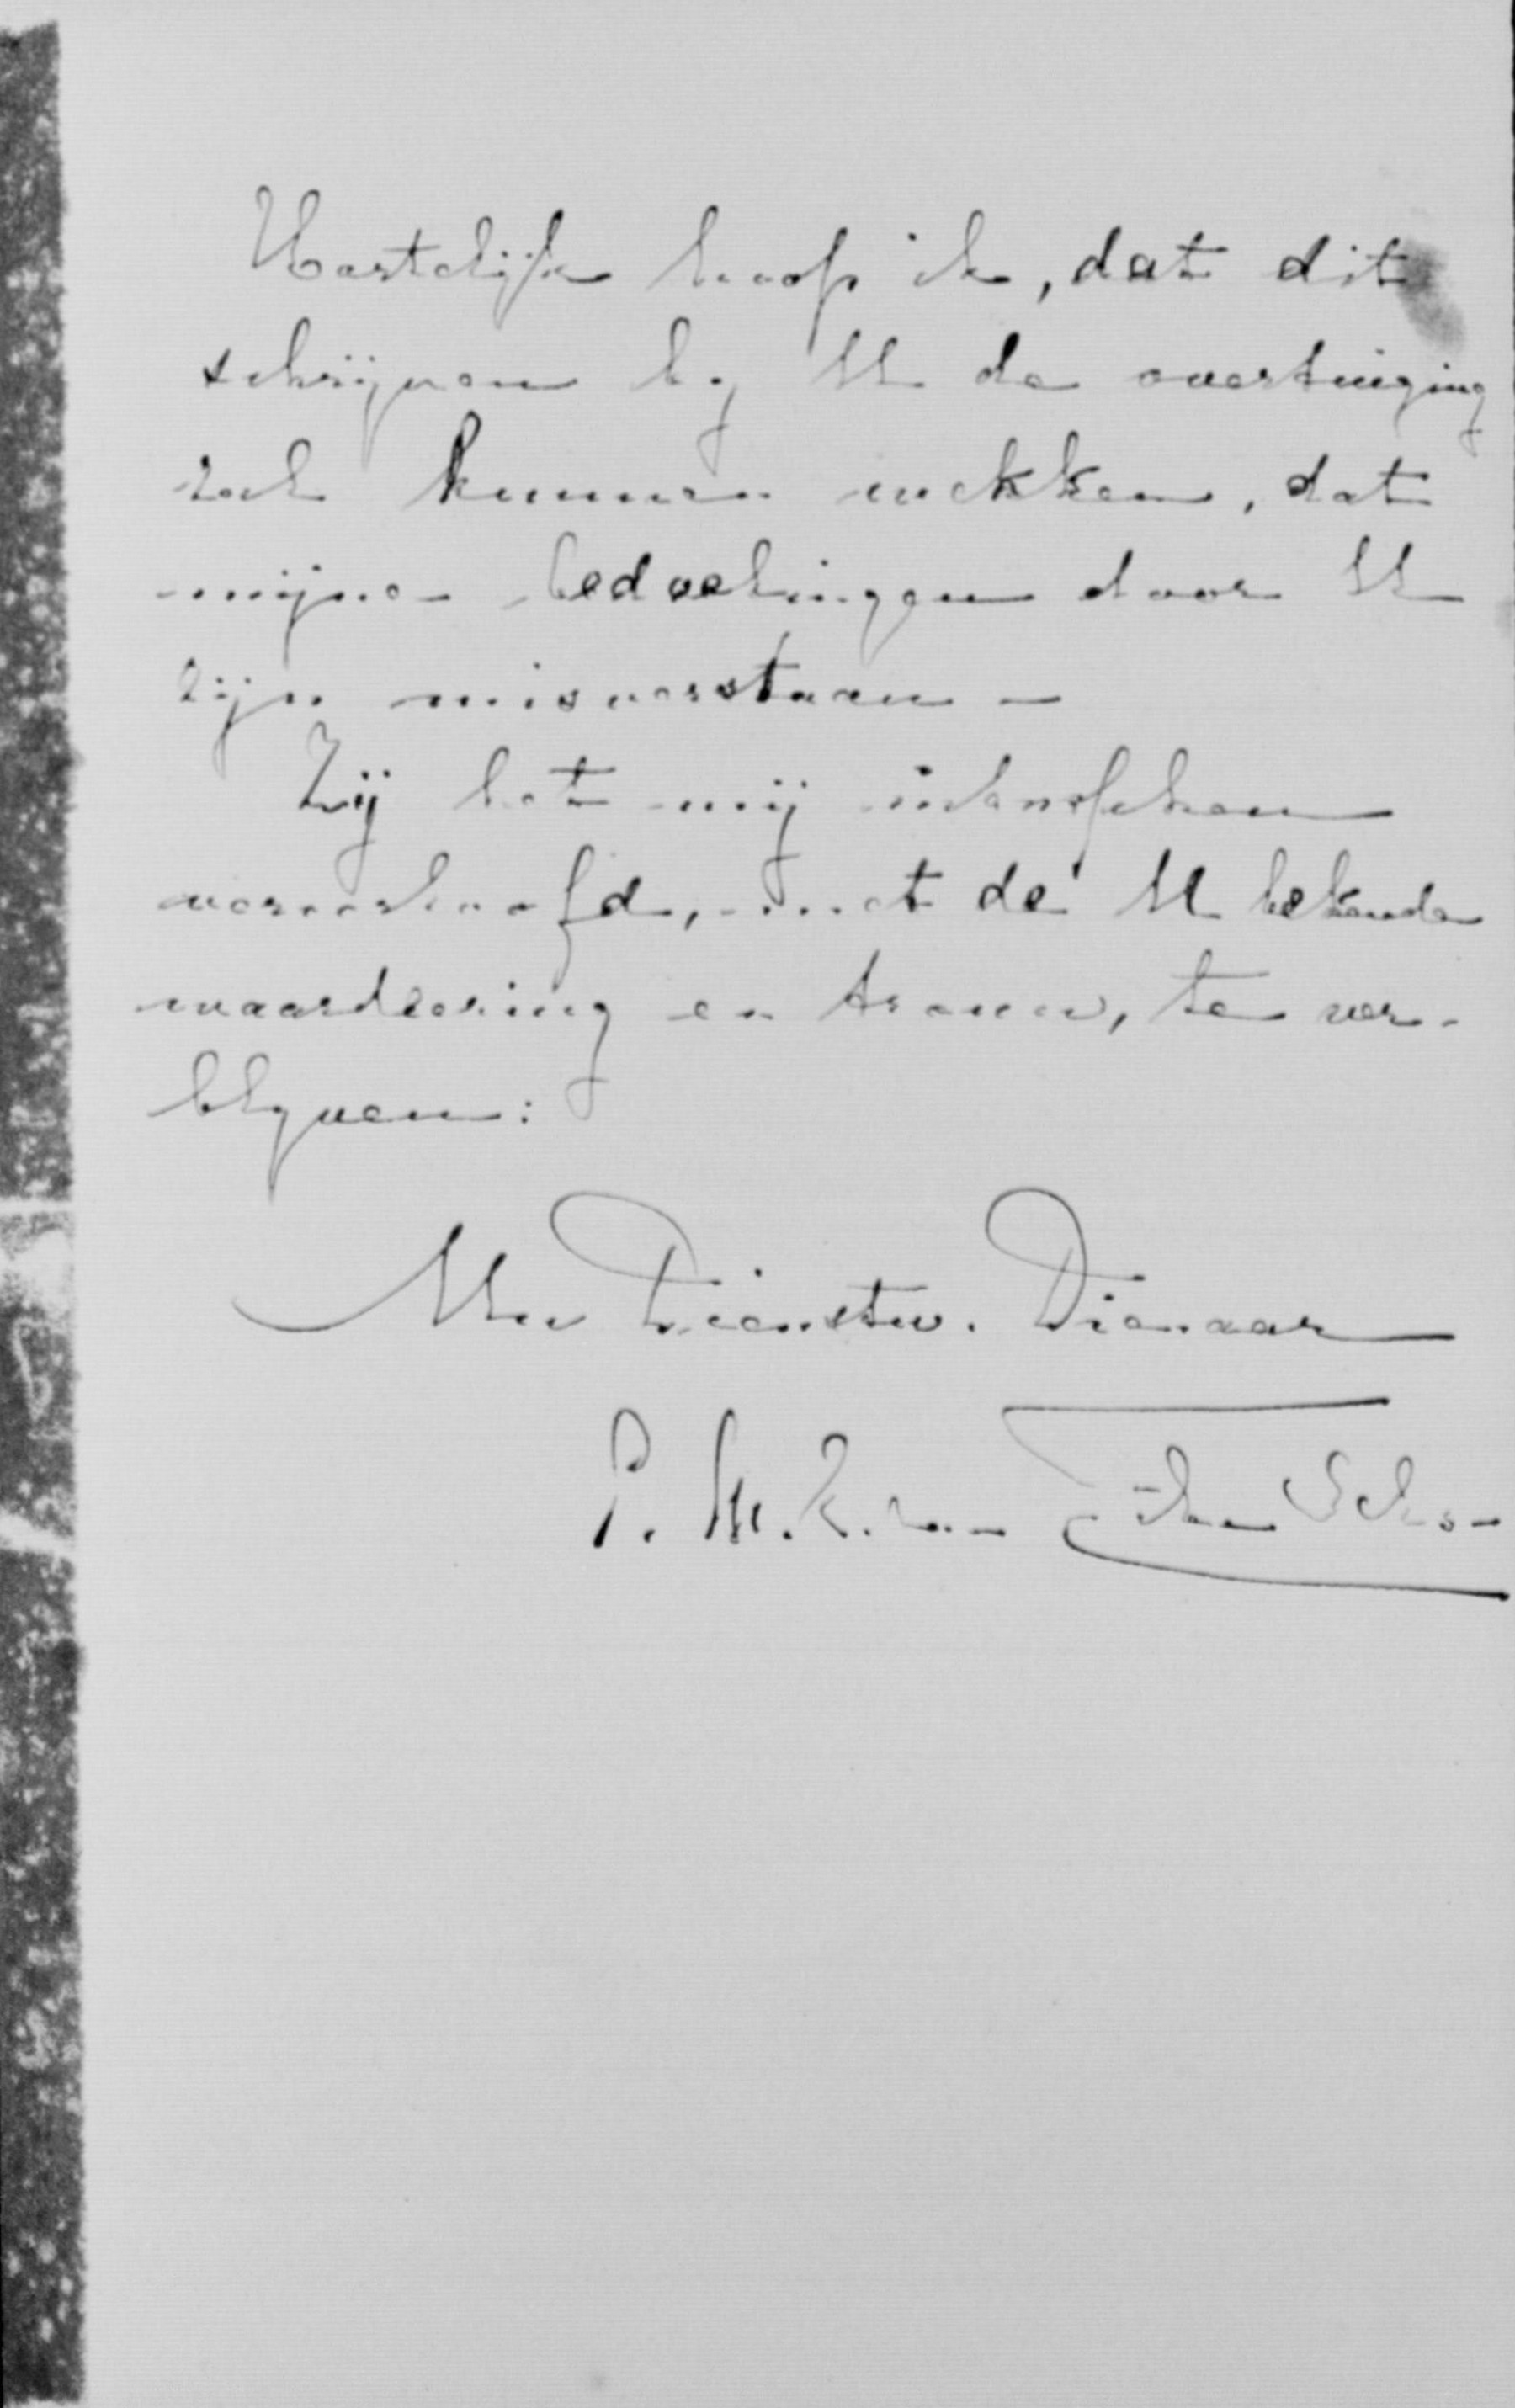 Hartelijk hoop ik, dat dit
schrijven bij U de overtuiging
zal kunnen wekken, dat
mijne bedoelingen door U
zijn misverstaan –
Zij het mij intusschen
veroorloofd, met de U bekende
waardeering en trouw, te ver-
blijven:
Uw Dienstw. Dienaar
P. W. K. van